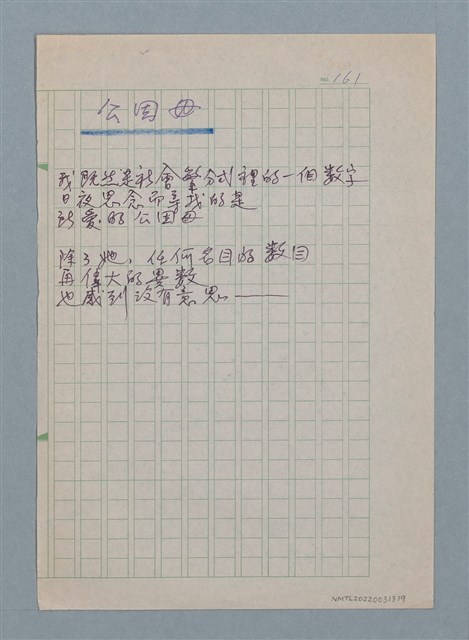 NO. 161
公因母
我既然是社會繁分式裡的一個數字
日夜思念而尋找的是
所愛的公因母
除了她,任何名目的數目
再偉大的異數
也感到沒有意思——
NMTL20220031379